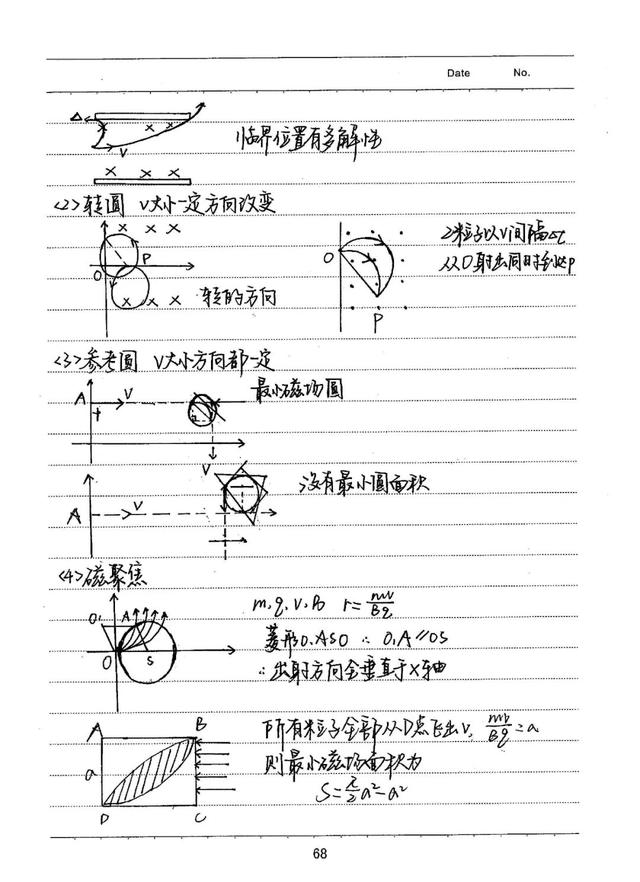 Date No.
Δ
V
临界位置有多解性
<2>转圆 V大小一定方向改变
O P
转的方向
O
P
2粒子以V间隔Δt
从O射出同时到达P
<3>参考圆 V大小方向都一定
A V
+
最小磁场圆
V
没有最小圆面积
A V
<4>磁聚焦
O₁ A
O S
m,q,V,B r=mv/Bq
菱形O₁ASO ∴O₁A∥OS
∴出射方向全垂直于X轴
A B
a
D C
所有粒子全部从D点飞出V, mv/Bq=a
则最小磁场面积为
S=π/2a²-a²
68